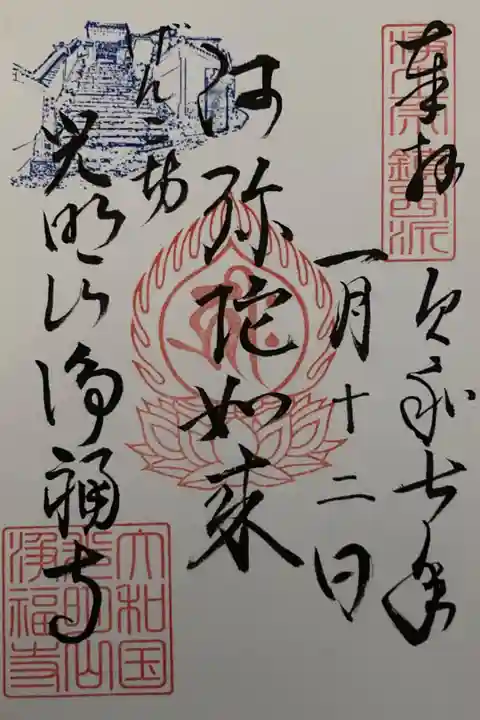 奉拝
令和七年
一月十二日
阿弥陀如来
げんこ坊
光明山浄福寺
浄土宗鎮西派
大和国
光明山
浄福寺